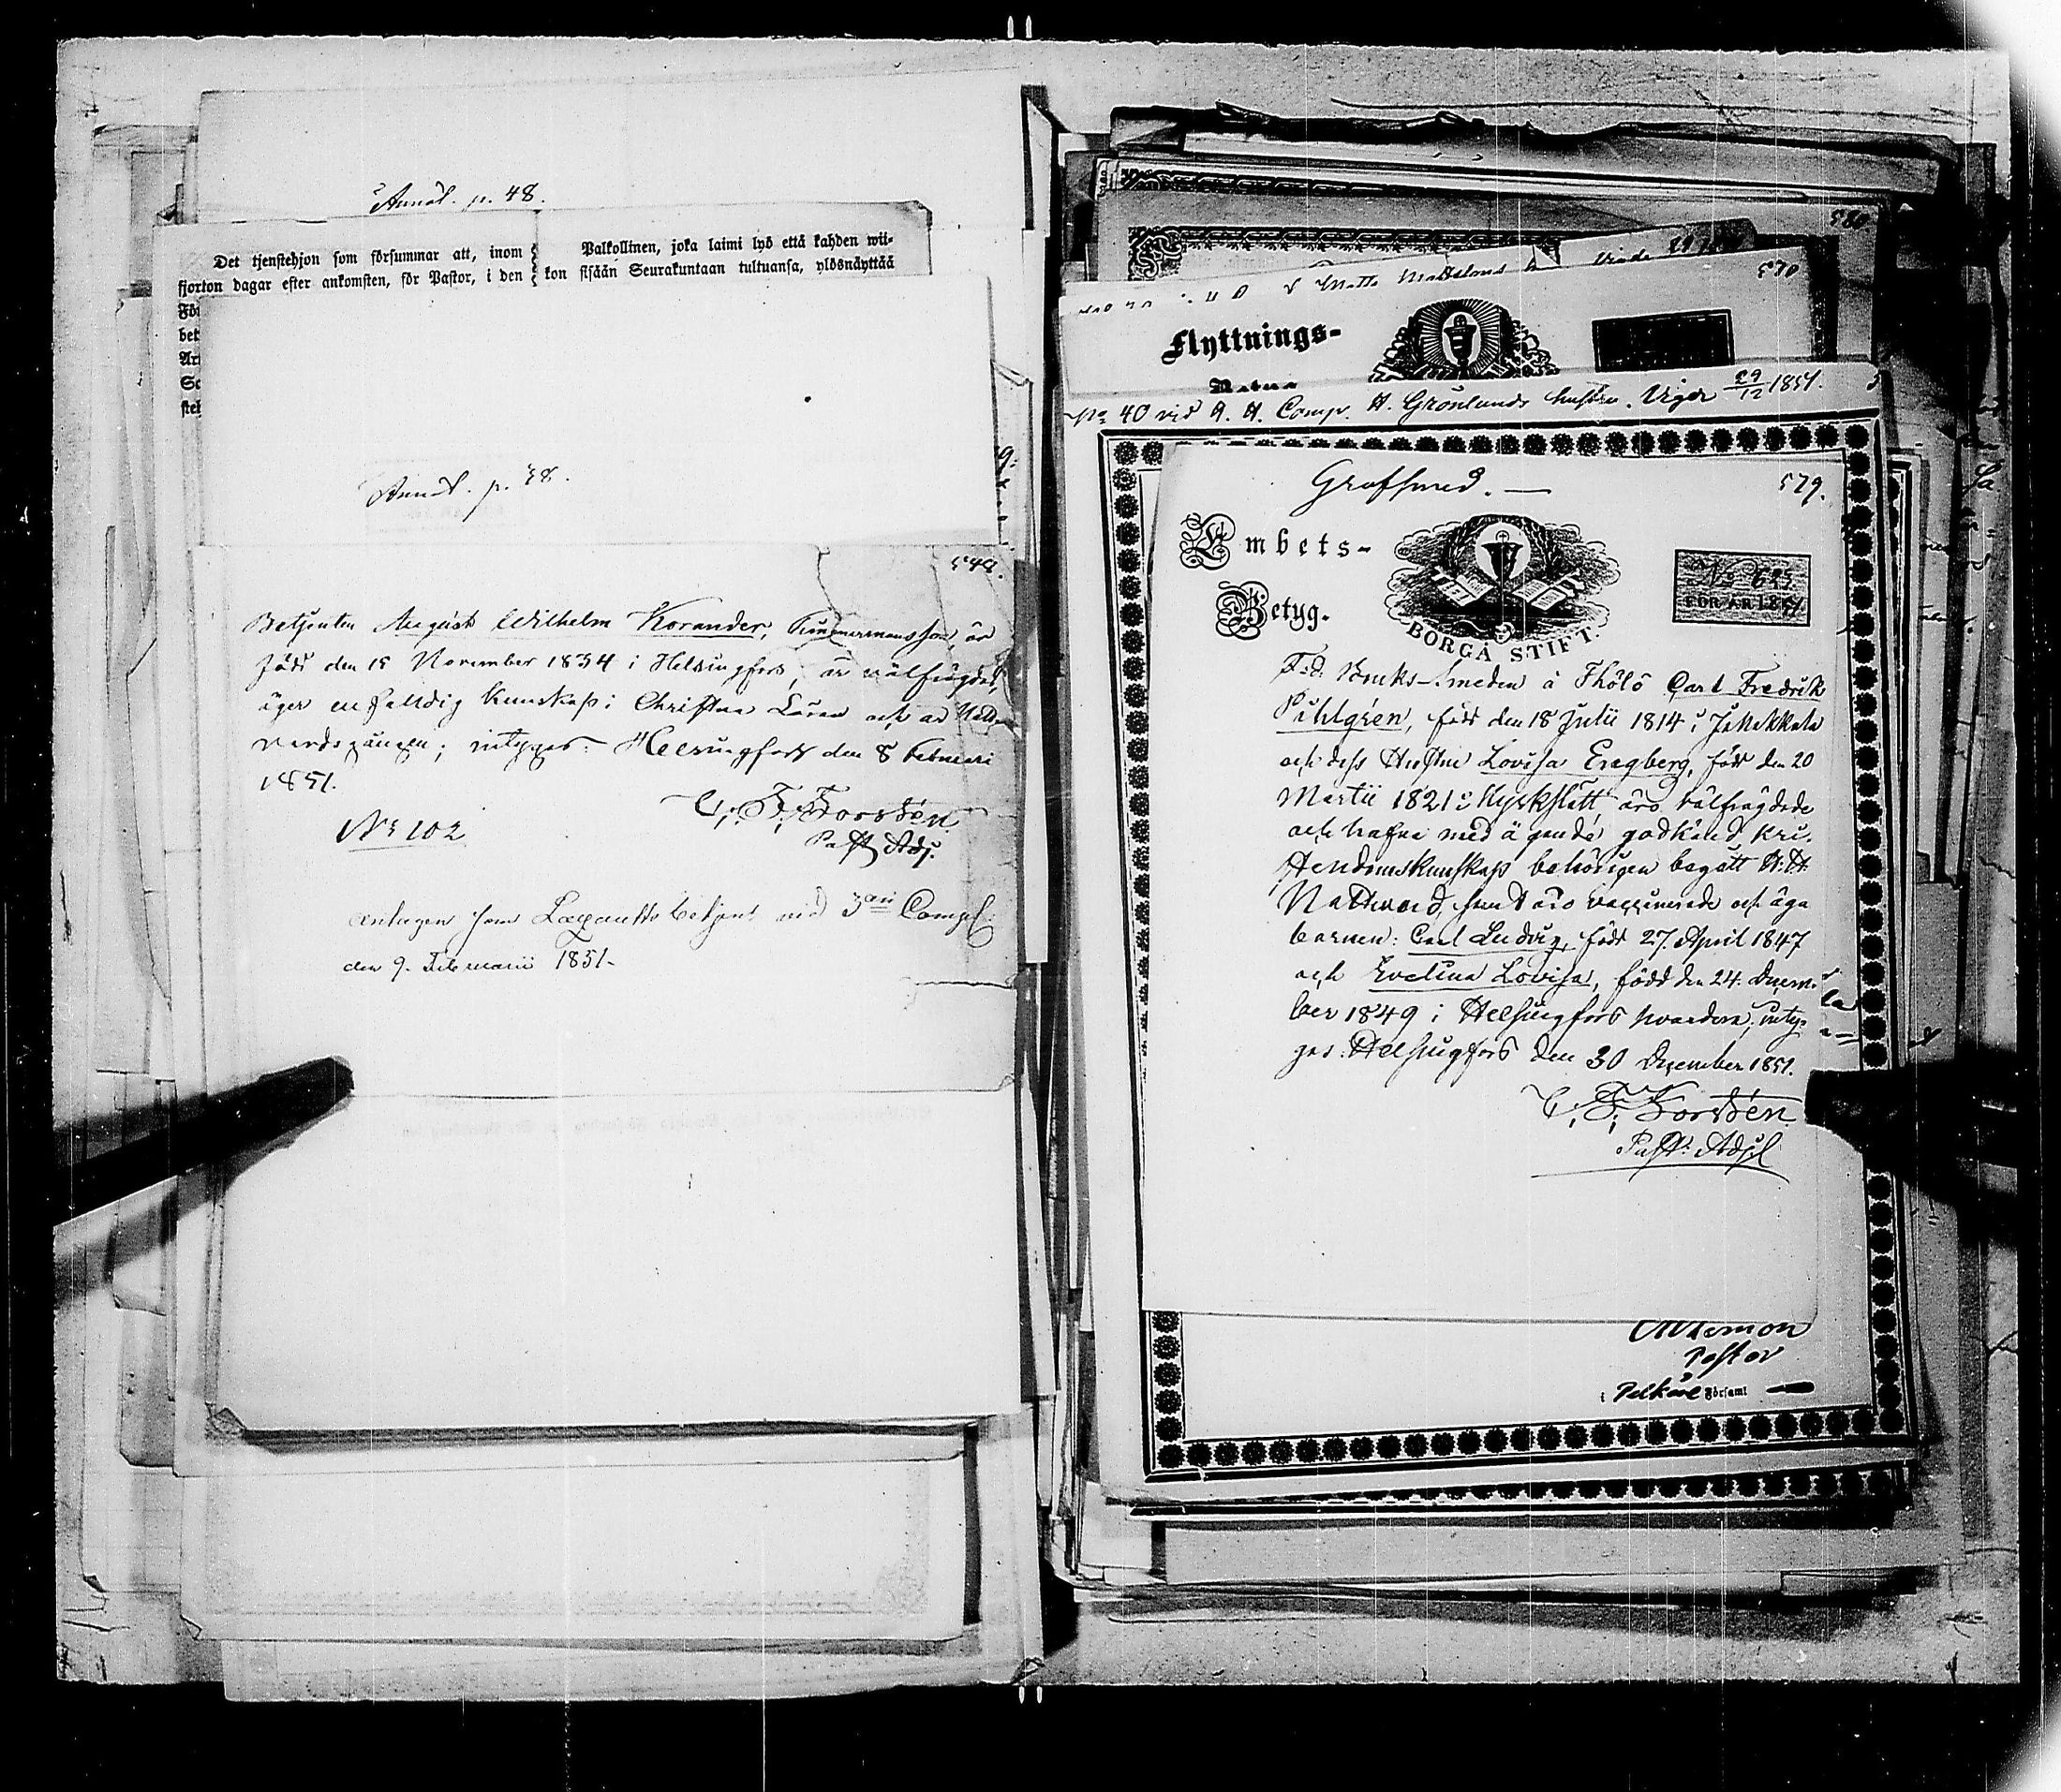 Anmäl. p. 48.
Det tjenstehjon som försummar att, inom
fjorton dagar efter ankomsten, för Pastor, i den
Palkollinen, joka laimi lyö että kahden wii-
kon sisään Seurakuntaan tultuansa, ylösnäyttää
Anmäl. p. 38.
548.
Betjenten August Wilhelm Korander, Timmermansson, är
född den 15 November 1834 i Helsingfors, är välfrägdad,
äger enfaldig kunskap i Christna Läran och är Natt-
vardsgången; intygas: Helsingfors den 8 Februari
1851.
C. F. Forstén
Past. Adj.
No 102
antagen som Lazaretts betjent vid 3die Comp:
den 9. Februarii 1851.
580
570
Matts Mattssons
Flyttnings-
40 vid A. A. Comp. A. Grönlunds hustru. Viger 29/12 1851.
Grofsmed. —
579.
Embets-
Betyg.
BORGÅ STIFT.
No 623
FÖR ÅR 1851
F:d. Bruks-smeden å Thölö Carl Fredrik
Pihlgrén, född den 18 Julii 1814 i Jokkis
och dess Hustru Lovisa Engberg, född den 20
Martii 1821 i Kyrkslätt, äro välfrägdade
och hafva med ägande godkänd Kri-
stendomskunskap behörigen begått H. H.
Nattvard, samt äro vaccinerade och äga
barnen: Carl Ludvig, född 27. April 1847
och Evelina Lovisa, född den 24. Decem-
ber 1849 i Helsingfors hvardera; inty-
gas: Helsingfors den 30 December 1851.
C. F. Forstén
Past: Adj:
Pastor
i Pelkäne Församl